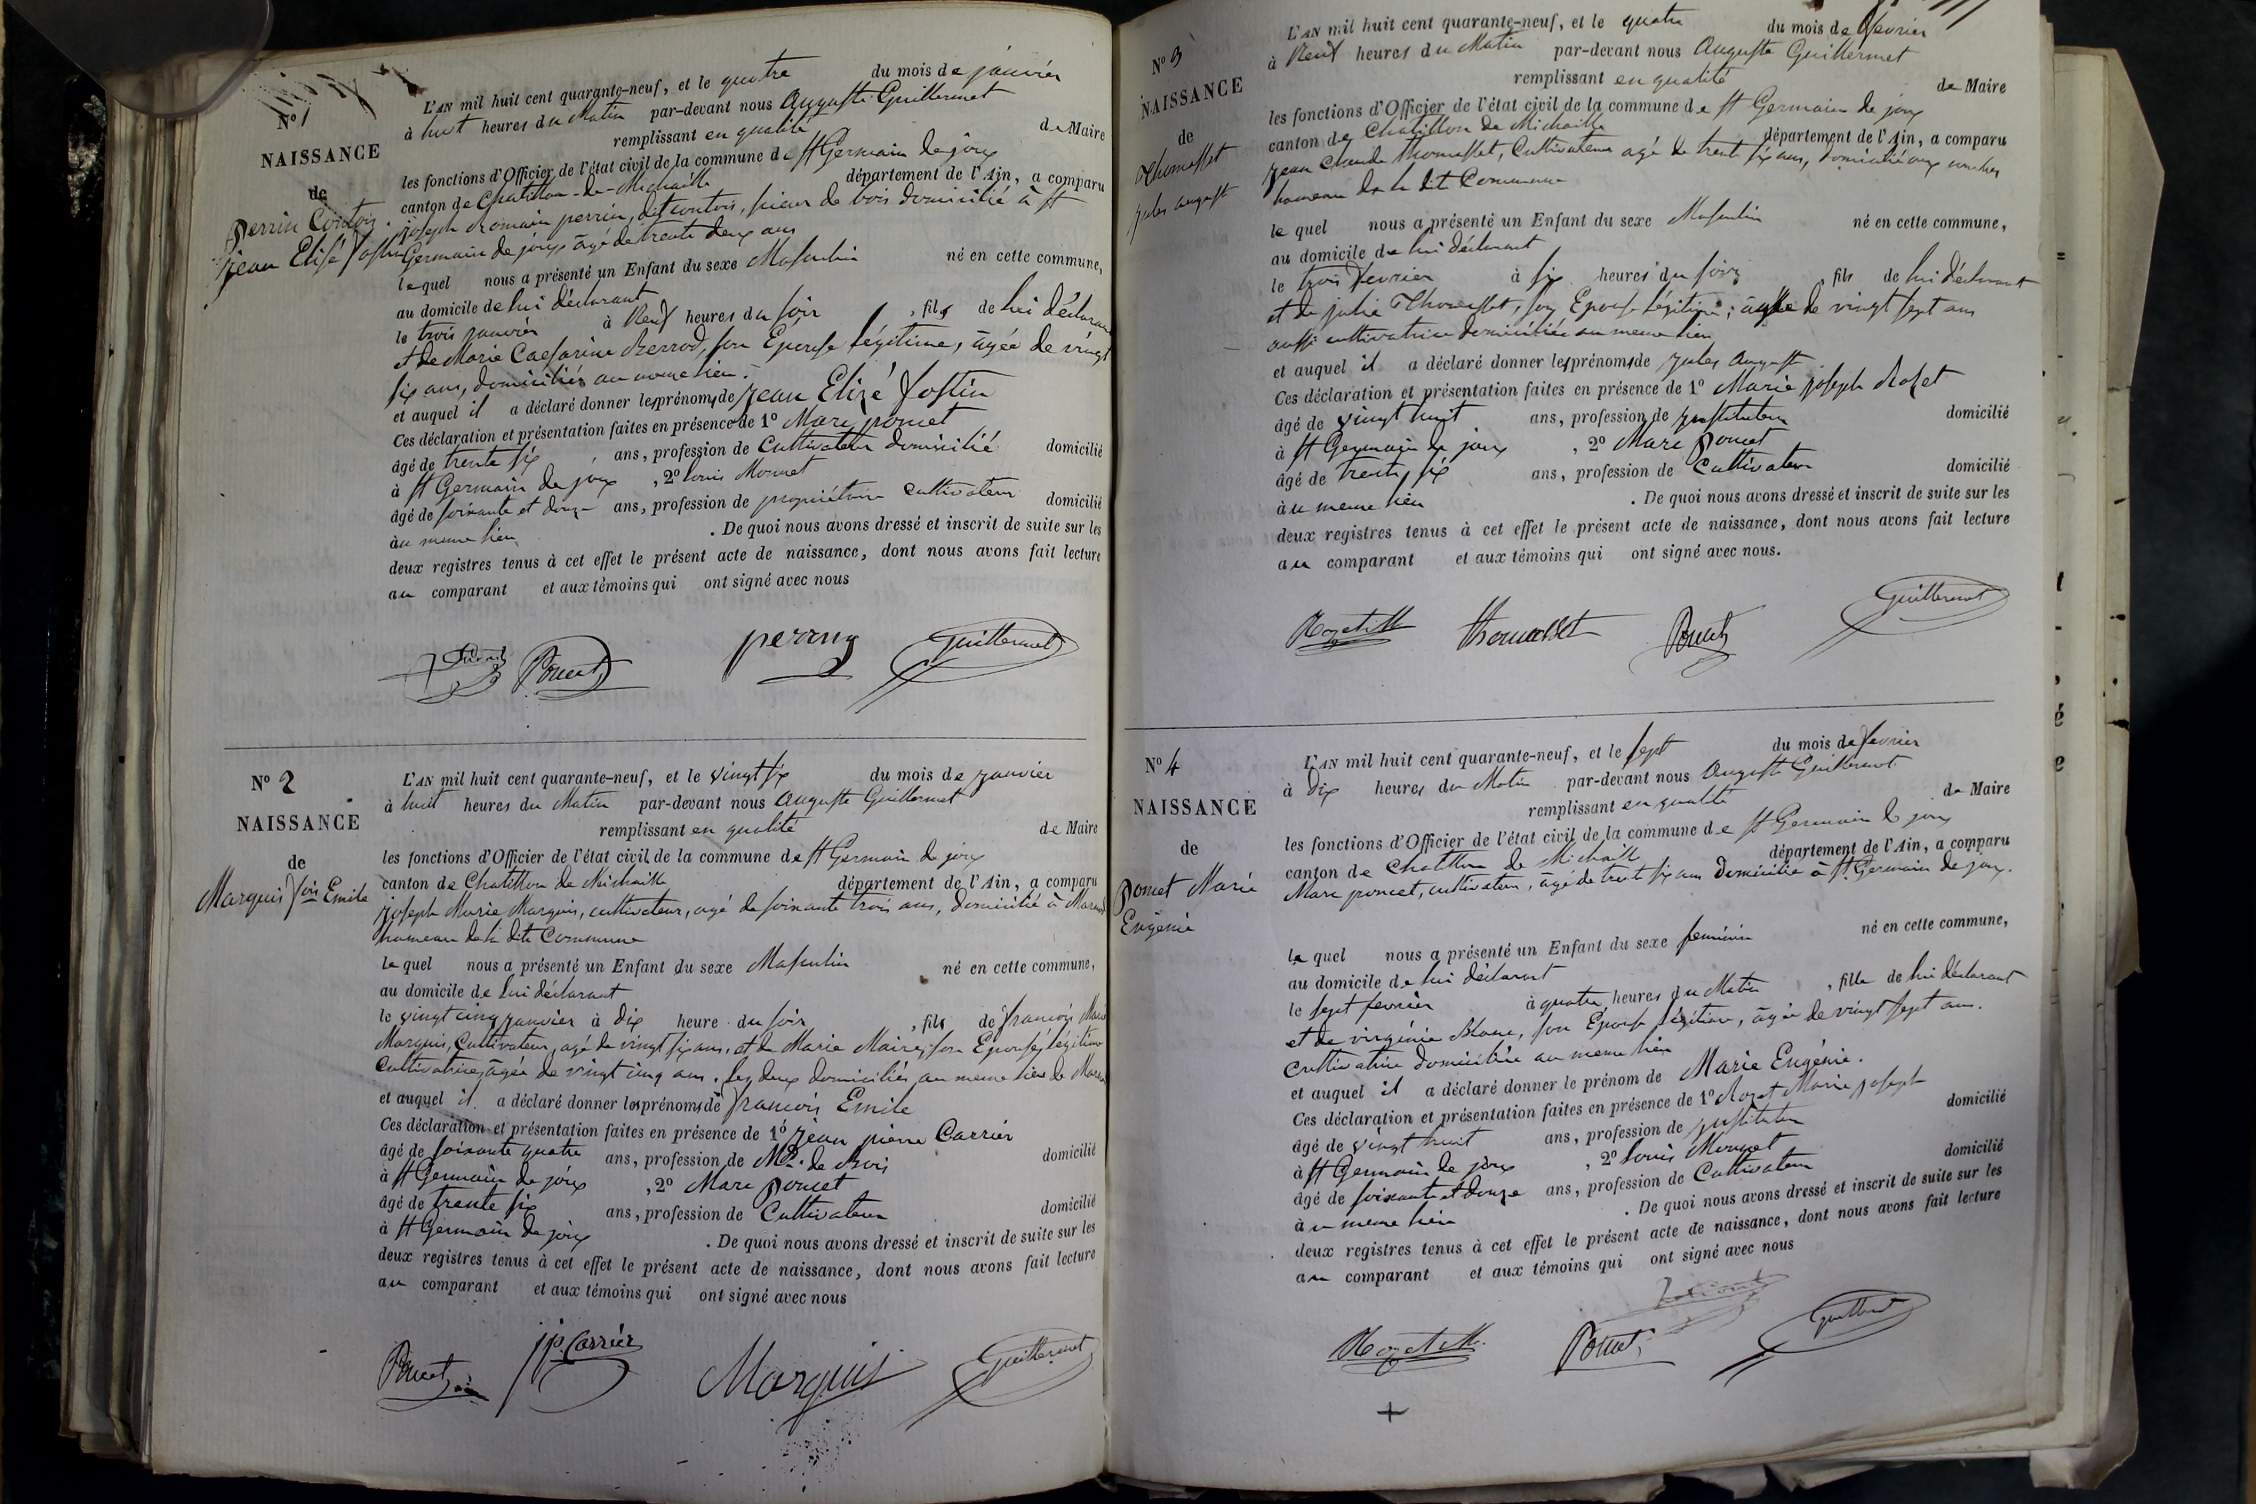 N° 1
NAISSANCE
de
Perrin Contois
jean Elisé Joftin
L'AN mil huit cent quarante-neuf, et le quatre du mois de janvier
à huit heures du Matin par-devant nous Auguste Guillermet
remplissant en qualité de Maire
les fonctions d'Officier de l'état civil de la commune de St Germain de joux
canton de Chatillon-de-Michaille département de l'Ain, a comparu
joseph Romain perrin, dit contois, scieur de bois domicilié à St
Germain de joux âgé de trente deux ans
lequel nous a présenté un Enfant du sexe Masculin né en cette commune,
au domicile de lui déclarant
le trois janvier à Neuf heures du soir, fils de lui déclarant
et de Marie Caefarine Berrod, son Epouse légitime, âgée de vingt
six ans, domiciliés au meme lieu.
et auquel il a déclaré donner les prénoms de jean Elizé Joftin
Ces déclaration et présentation faites en présence de 1° Marc poncet
âgé de trente six ans, profession de Cultivateur domicilié domicilié
à St Germain de joux, 2° Louis Mounet
âgé de soixante et douze ans, profession de propriétaire cultivateur domicilié
au meme lieu. De quoi nous avons dressé et inscrit de suite sur les
deux registres tenus à cet effet le présent acte de naissance, dont nous avons fait lecture
au comparant et aux témoins qui ont signé avec nous
Poncet perrin Guillermet
N° 2
NAISSANCE
de
Marquis fois Emile
L'AN mil huit cent quarante-neuf, et le vingt six du mois de janvier
à huit heures du Matin par-devant nous Auguste Guillermet
remplissant en qualité de Maire
les fonctions d'Officier de l'état civil de la commune de St Germain de joux
canton de Chatillon de Michaille département de l'Ain, a comparu
joseph Marie Marquis, cultivateur, agé de soixante trois ans, domicilié à
hameau de la dite Commune
lequel nous a présenté un Enfant du sexe Masculin né en cette commune,
au domicile de lui déclarant
le vingt cinq janvier à dix heure du soir, fils de francois Marie
Marquis, Cultivateur, agé de vingt six ans, et de Marie Maire, son Epouse légitime
Cultivatrice, âgée de vingt cinq ans. les deux domiciliés au meme lieu de
et auquel il a déclaré donner les prénoms de francois Emile
Ces déclaration et présentation faites en présence de 1° jean pierre Carrier
âgé de soixante quatre ans, profession de Md. de Bois domicilié
à St Germain de joux, 2° Marc poncet
âgé de trente six ans, profession de Cultivateur domicilié
à St Germain de joux. De quoi nous avons dressé et inscrit de suite sur les
deux registres tenus à cet effet le présent acte de naissance, dont nous avons fait lecture
au comparant et aux témoins qui ont signé avec nous
Poncet jp. Carrier Marquis Guillermet
N° 3
NAISSANCE
de
Thomasset
jules auguste
L'AN mil huit cent quarante-neuf, et le quatre du mois de fevrier
à Neuf heures du Matin par-devant nous Auguste Guillermet
remplissant en qualité de Maire
les fonctions d'Officier de l'état civil de la commune de St Germain de joux
canton de Chatillon de Michaille département de l'Ain, a comparu
jean Claude Thomasset, Cultivateur agé de trente six ans, domicilié aux
hameau de la dit Commune
lequel nous a présenté un Enfant du sexe Masculin né en cette commune,
au domicile de lui déclarant
le trois fevrier à six heures du soir, fils de lui déclarant
et de julie Thomasset, son Epouse légitime; agée de vingt sept ans
aussi cultivatrice domiciliée au meme lieu
et auquel il a déclaré donner les prénoms de jules auguste
Ces déclaration et présentation faites en présence de 1° Marie joseph Rozet
âgé de vingt huit ans, profession de instituteur domicilié
à St Germain de joux, 2° Marc Poncet
âgé de trente six ans, profession de Cultivateur domicilié
au meme lieu. De quoi nous avons dressé et inscrit de suite sur les
deux registres tenus à cet effet le présent acte de naissance, dont nous avons fait lecture
au comparant et aux témoins qui ont signé avec nous.
Rozet M Thomasset Poncet Guillermet
N° 4
NAISSANCE
de
Poncet Marie
Eugénie
L'AN mil huit cent quarante-neuf, et le sept du mois de fevrier
à Dix heures du Matin par-devant nous Auguste Guillermet
remplissant en qualité de Maire
les fonctions d'Officier de l'état civil de la commune de St Germain de joux
canton de Chatillon de Michaille département de l'Ain, a comparu
Marc poncet, cultivateur, âgé de trente six ans Domicilié à St Germain de joux.
lequel nous a présenté un Enfant du sexe feminin né en cette commune,
au domicile de lui déclarant
le sept fevrier à quatre heures du Matin, fille de lui déclarant
et de virginie Blanc, son Epouse légitime, âgée de vingt sept ans.
Cultivatrice domiciliée au meme lieu
et auquel il a déclaré donner le prénom de Marie Eugénie.
Ces déclaration et présentation faites en présence de 1° Rozet Marie joseph
âgé de vingt huit ans, profession de instituteur domicilié
à St Germain de joux, 2° Louis Mounet
âgé de soixante et douze ans, profession de Cultivateur domicilié
au meme lieu. De quoi nous avons dressé et inscrit de suite sur les
deux registres tenus à cet effet le présent acte de naissance, dont nous avons fait lecture
au comparant et aux témoins qui ont signé avec nous
Rozet M. Poncet Guillermet